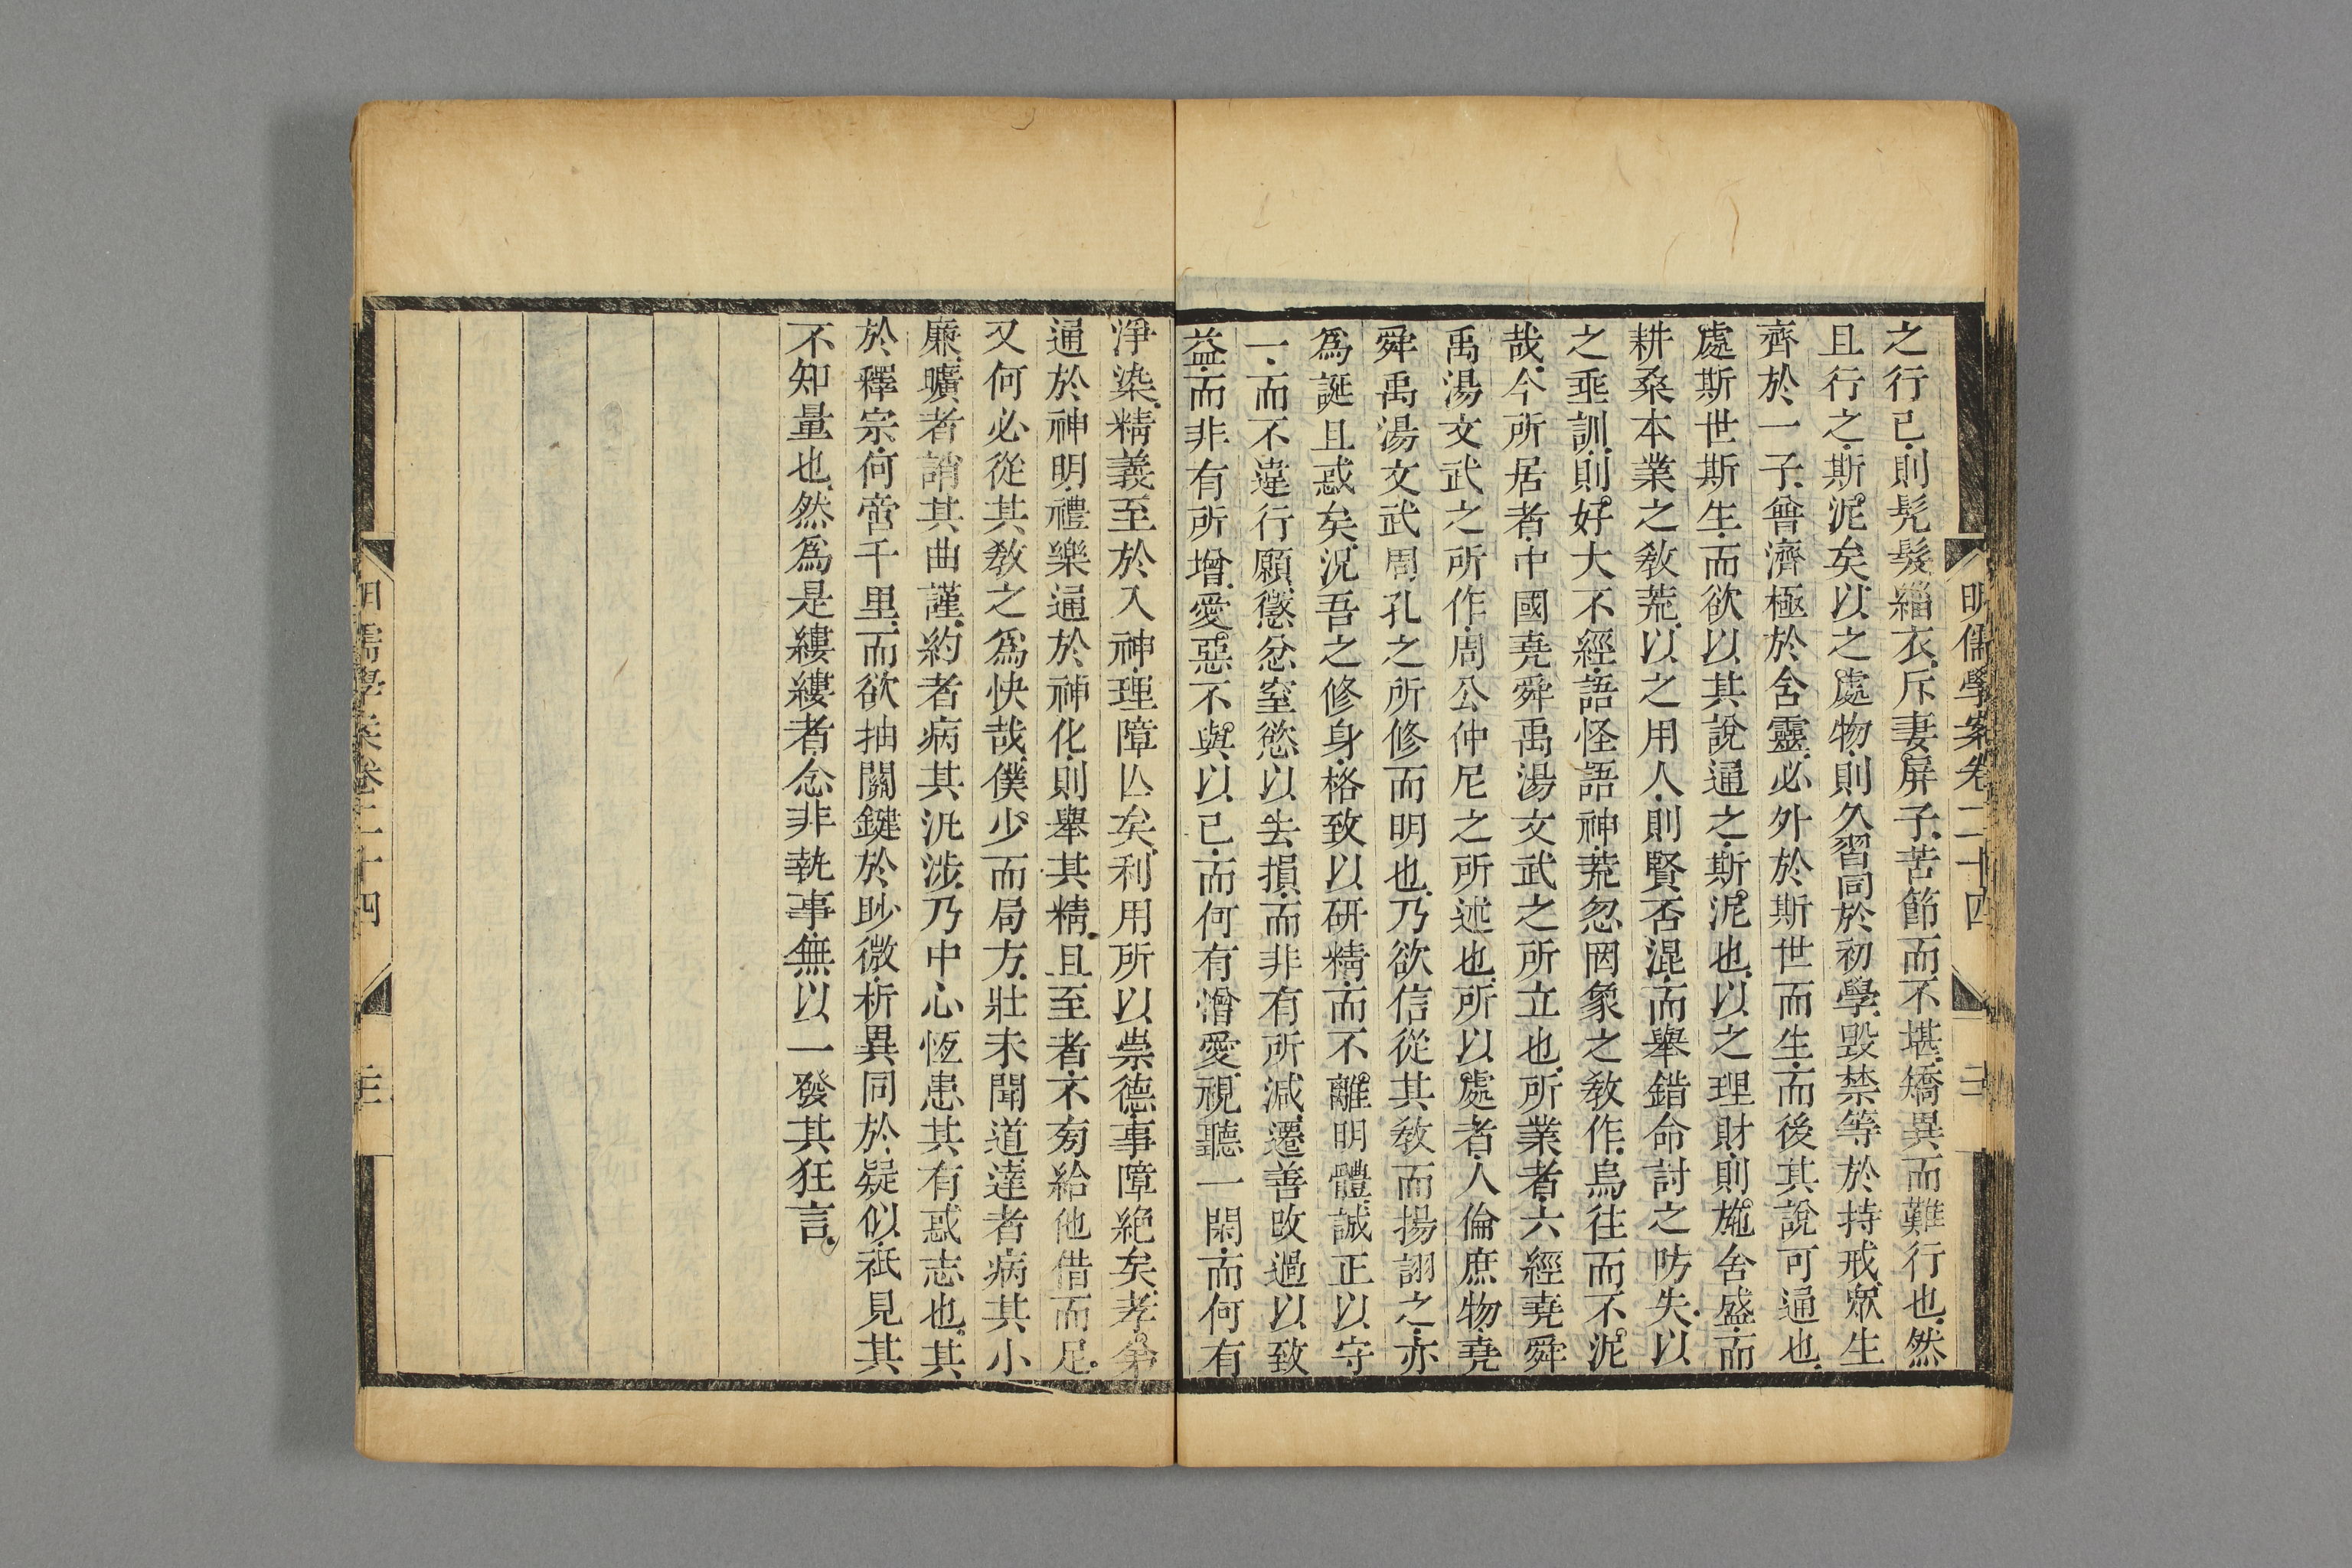 明儒學案卷二十四
之行已則髡髮緇衣斥妻屏子苦節而不堪矯異而難行也然
且行之斯泥矣以之處物則久習同於初學毀禁等於持戒眾生
齊於一子曾濟極於含靈必外於斯世而生而後其說可通也
處斯世斯生而欲以其說通之斯泥也以之理財則施舍盛而
耕桑本業之敎荒以之用人則賢否混而舉錯命討之防失以
之垂訓則好大不經語怪語神荒忽罔象之敎作烏往而不泥
哉今所居者中國堯舜禹湯文武之所立也所業者六經堯舜
禹湯文武之所作周公仲尼之所述也所以處者人倫庶物堯
舜禹湯文武周孔之所修而明也乃欲信從其敎而揚詡之亦
爲誕且惑矣況吾之修身格致以硏精而不離明體誠正以守
一而不違行願懲忿窒慾以去損而非有所減遷善改過以致
益而非有所增愛惡不與以已而何有憎愛視聽一閑而何有
淨染精義至於入神理障亾矣利用所以崇德事障絕矣孝弟
通於神明禮樂通於神化則舉其精且至者不匃給他借而足
又何必從其敎之爲快哉僕少而局方壯未聞道達者病其小
廉曠者誚其曲謹約者病其汎涉乃中心恆患其有惑志也其
於釋宗何啻千里而欲抽關鍵於眇微析異同於疑似祇見其
不知量也然爲是縷縷者念非執事無以一發其狂言
明儒學案卷二十四